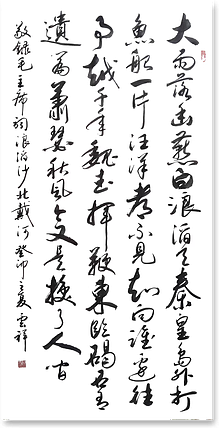 大雨落幽燕白浪滔天秦皇島外打
魚船一片汪洋都不見知向誰邊往
事越千年魏武揮鞭東臨碣石有
遺篇蕭瑟秋風今又是換了人间
敬錄毛主席詞浪淘沙北戴河癸卯之夏雲祥